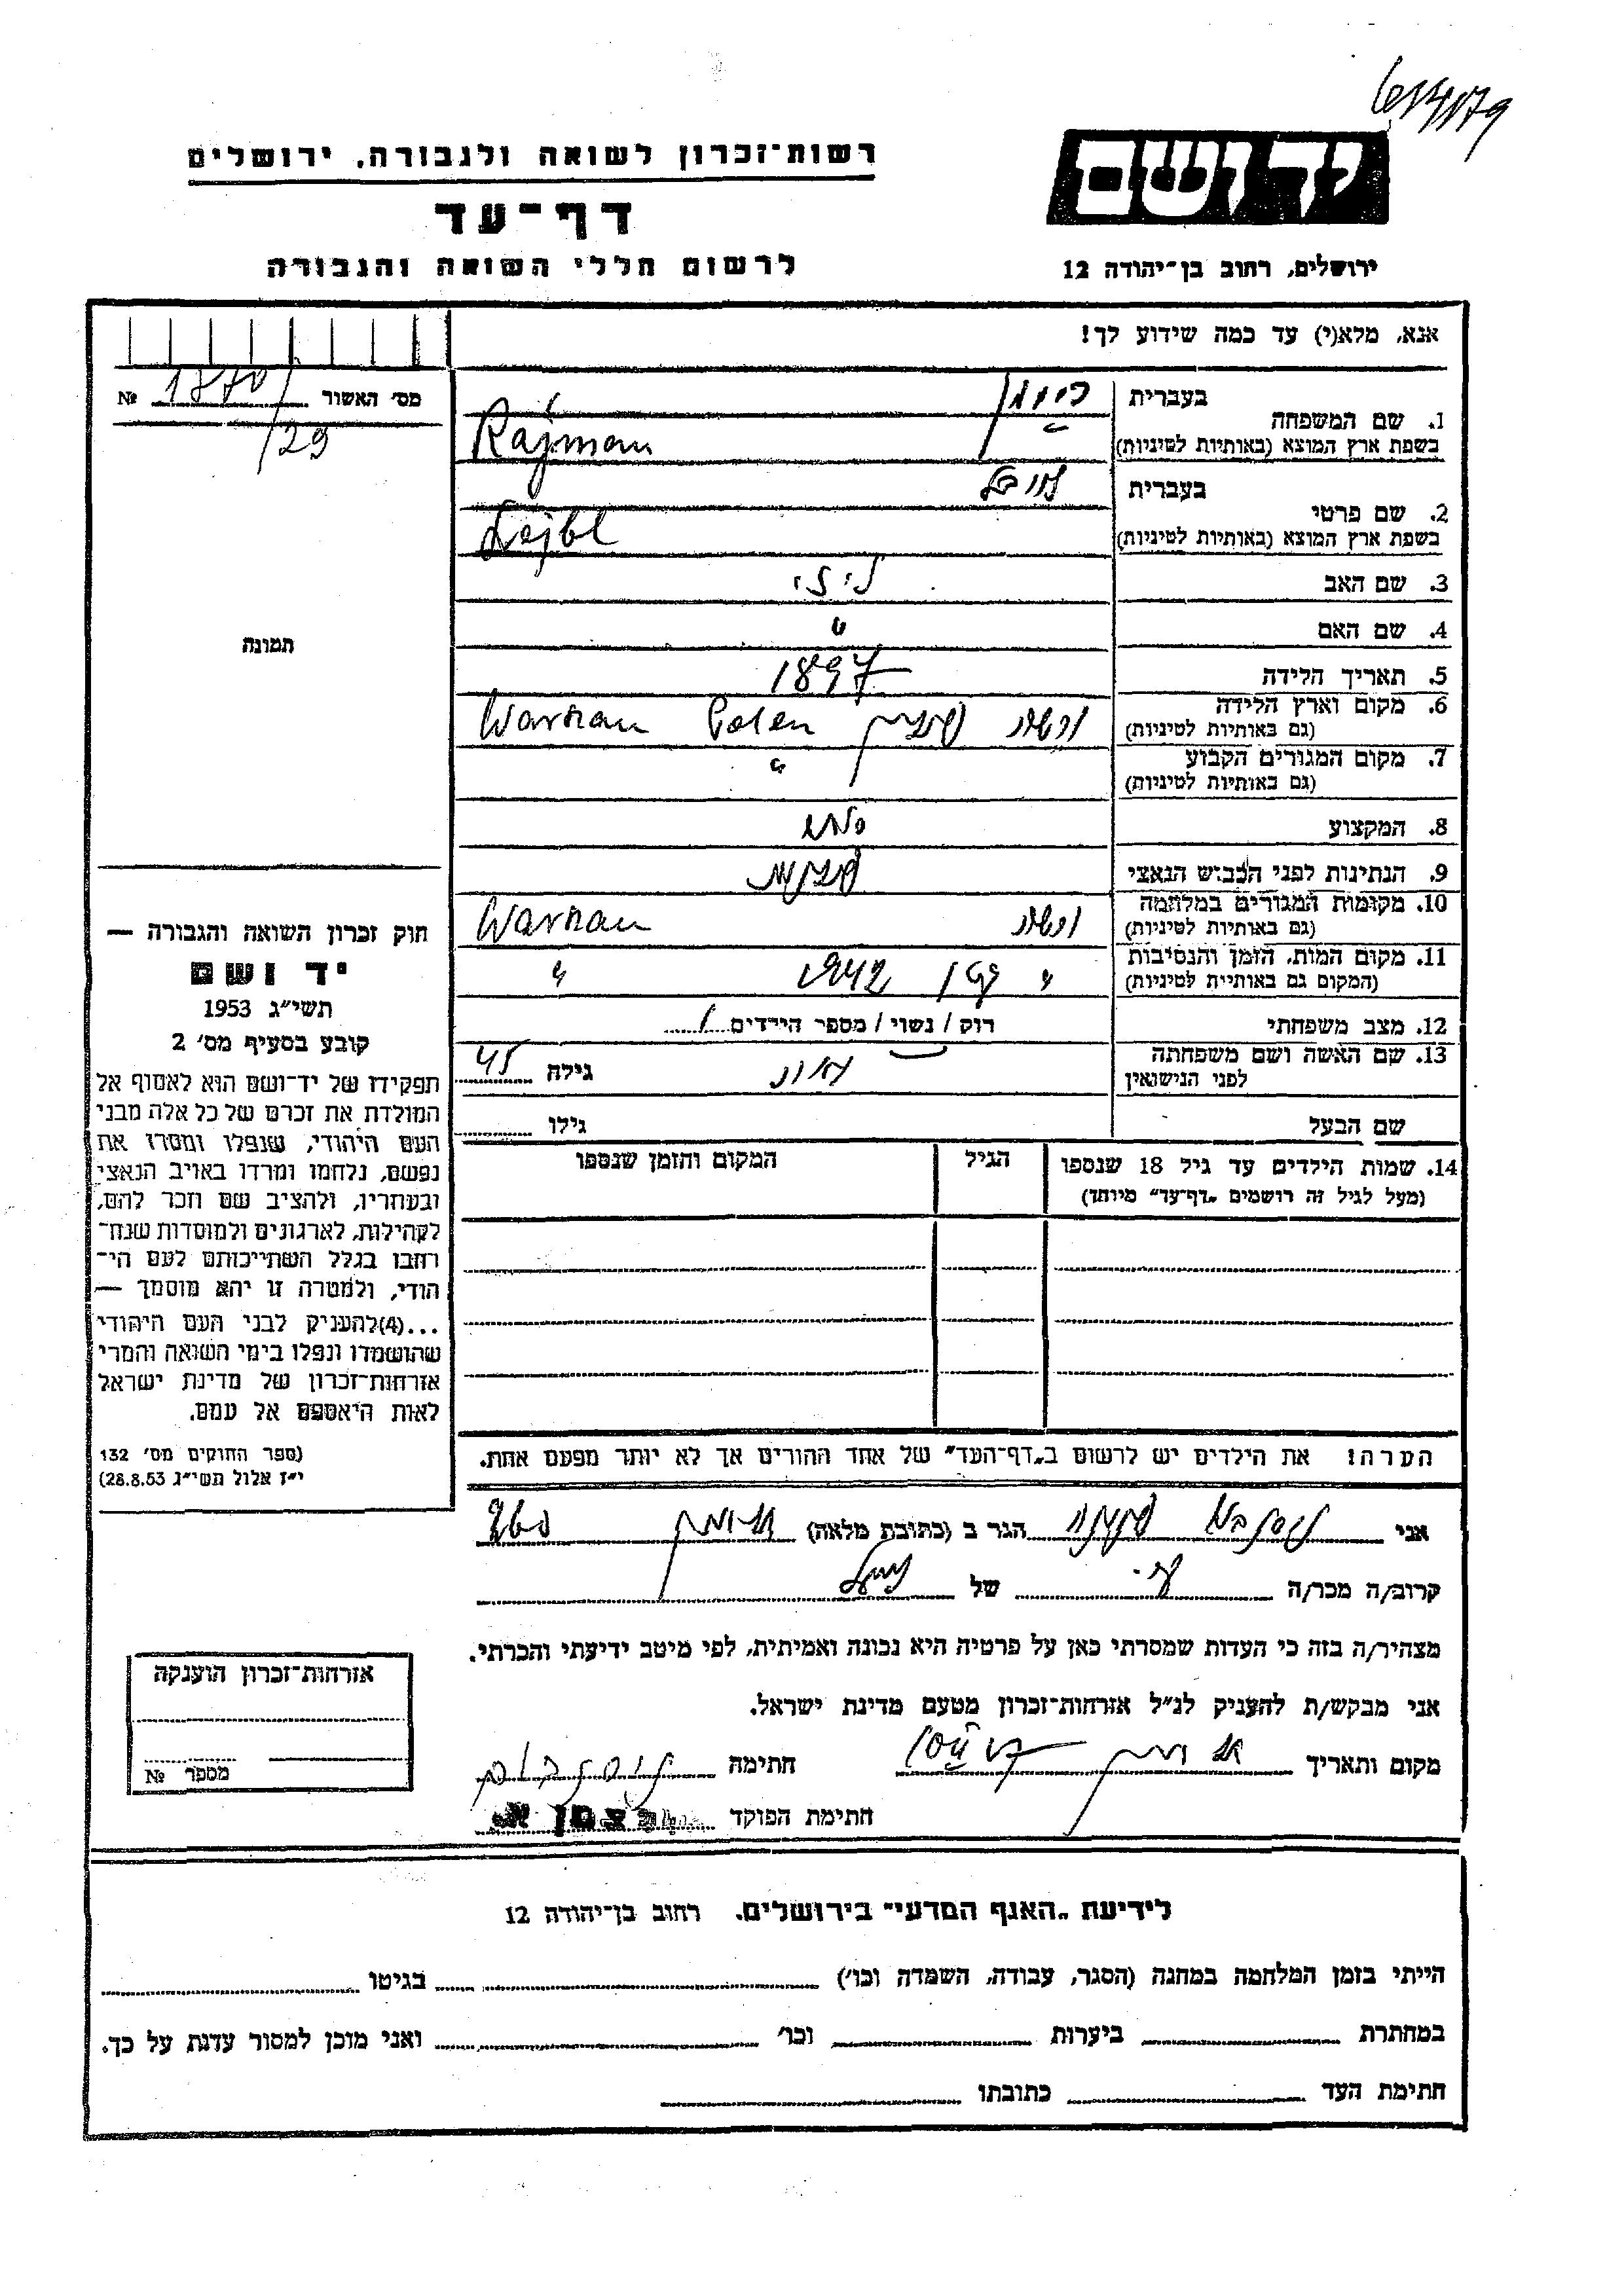 רשות־זכרון לשואה ולגבורה, ירושלים
יד ושם
דף־עד
לרשום חללי השואה והגבורה
ירושלים, רחוב בן־יהודה 12
אנא, מלא(י) עד כמה שידוע לך!
מס׳ האשור 1870/ №
/29
תמונה
1. שם המשפחה
בעברית
בשפת ארץ המוצא (באותיות לטיניות) Rajman
2. שם פרטי
בעברית
בשפת ארץ המוצא (באותיות לטיניות) Lejbl
3. שם האב
4. שם האם "
5. תאריך הלידה 1897
6. מקום וארץ הלידה
(גם באותיות לטיניות) ורשה פולין Polen Warszau
7. מקום המגורים הקבוע "
(גם באותיות לטיניות)
8. המקצוע
9. הנתינות לפני הכבוש הנאצי פולנית
10. מקומות המגורים במלחמה
(גם באותיות לטיניות) ורשה Warszau
11. מקום המות, הזמן והנסיבות
(המקום גם באותיות לטיניות) " 1942 "
12. מצב משפחתי רוק / נשוי / מספר הילדים 1
13. שם האשה ושם משפחתה
לפני הנישואין גילה 45
שם הבעל גילו
14. שמות הילדים עד גיל 18 שנספו הגיל המקום והזמן שנספו
(מעל לגיל זה רושמים „דף־עד״ מיוחד)
הערה! את הילדים יש לרשום ב„דף־העד״ של אחד ההורים אך לא יותר מפעם אחת.
חוק זכרון השואה והגבורה —
יד ושם
תשי״ג 1953
קובע בסעיף מס׳ 2
תפקידו של יד־ושם הוא לאסוף אל
המולדת את זכרם של כל אלה מבני
העם היהודי, שנפלו ומסרו את
נפשם, נלחמו ומרדו באויב הנאצי
ובעוזריו, ולהציב שם וזכר להם,
לקהילות, לארגונים ולמוסדות שנח־
רבו בגלל השתייכותם לעם הי־
הודי, ולמטרה זו יהא מוסמך —
...(4)להעניק לבני העם היהודי
שהושמדו ונפלו בימי השואה והמרי
אזרחות־זכרון של מדינת ישראל
לאות היאספם אל עמם.
(ספר החוקים מס׳ 132
י״ז אלול תשי״ג 28.8.53)
אני הגר ב (כתובת מלאה)
קרוב/ה מכר/ה של
מצהיר/ה בזה כי העדות שמסרתי כאן על פרטיה היא נכונה ואמיתית, לפי מיטב ידיעתי והכרתי.
אני מבקש/ת להעניק לנ״ל אזרחות־זכרון מטעם מדינת ישראל.
מקום ותאריך חתימה
חתימת הפוקד
אזרחות־זכרון הוענקה
מספר №
לידיעת „האגף המדעי״ בירושלים, רחוב בן־יהודה 12
הייתי בזמן המלחמה במחנה (הסגר, עבודה, השמדה וכו׳) בגיטו
במחתרת ביערות וכו׳ ואני מוכן למסור עדות על כך.
חתימת העד כתובתו